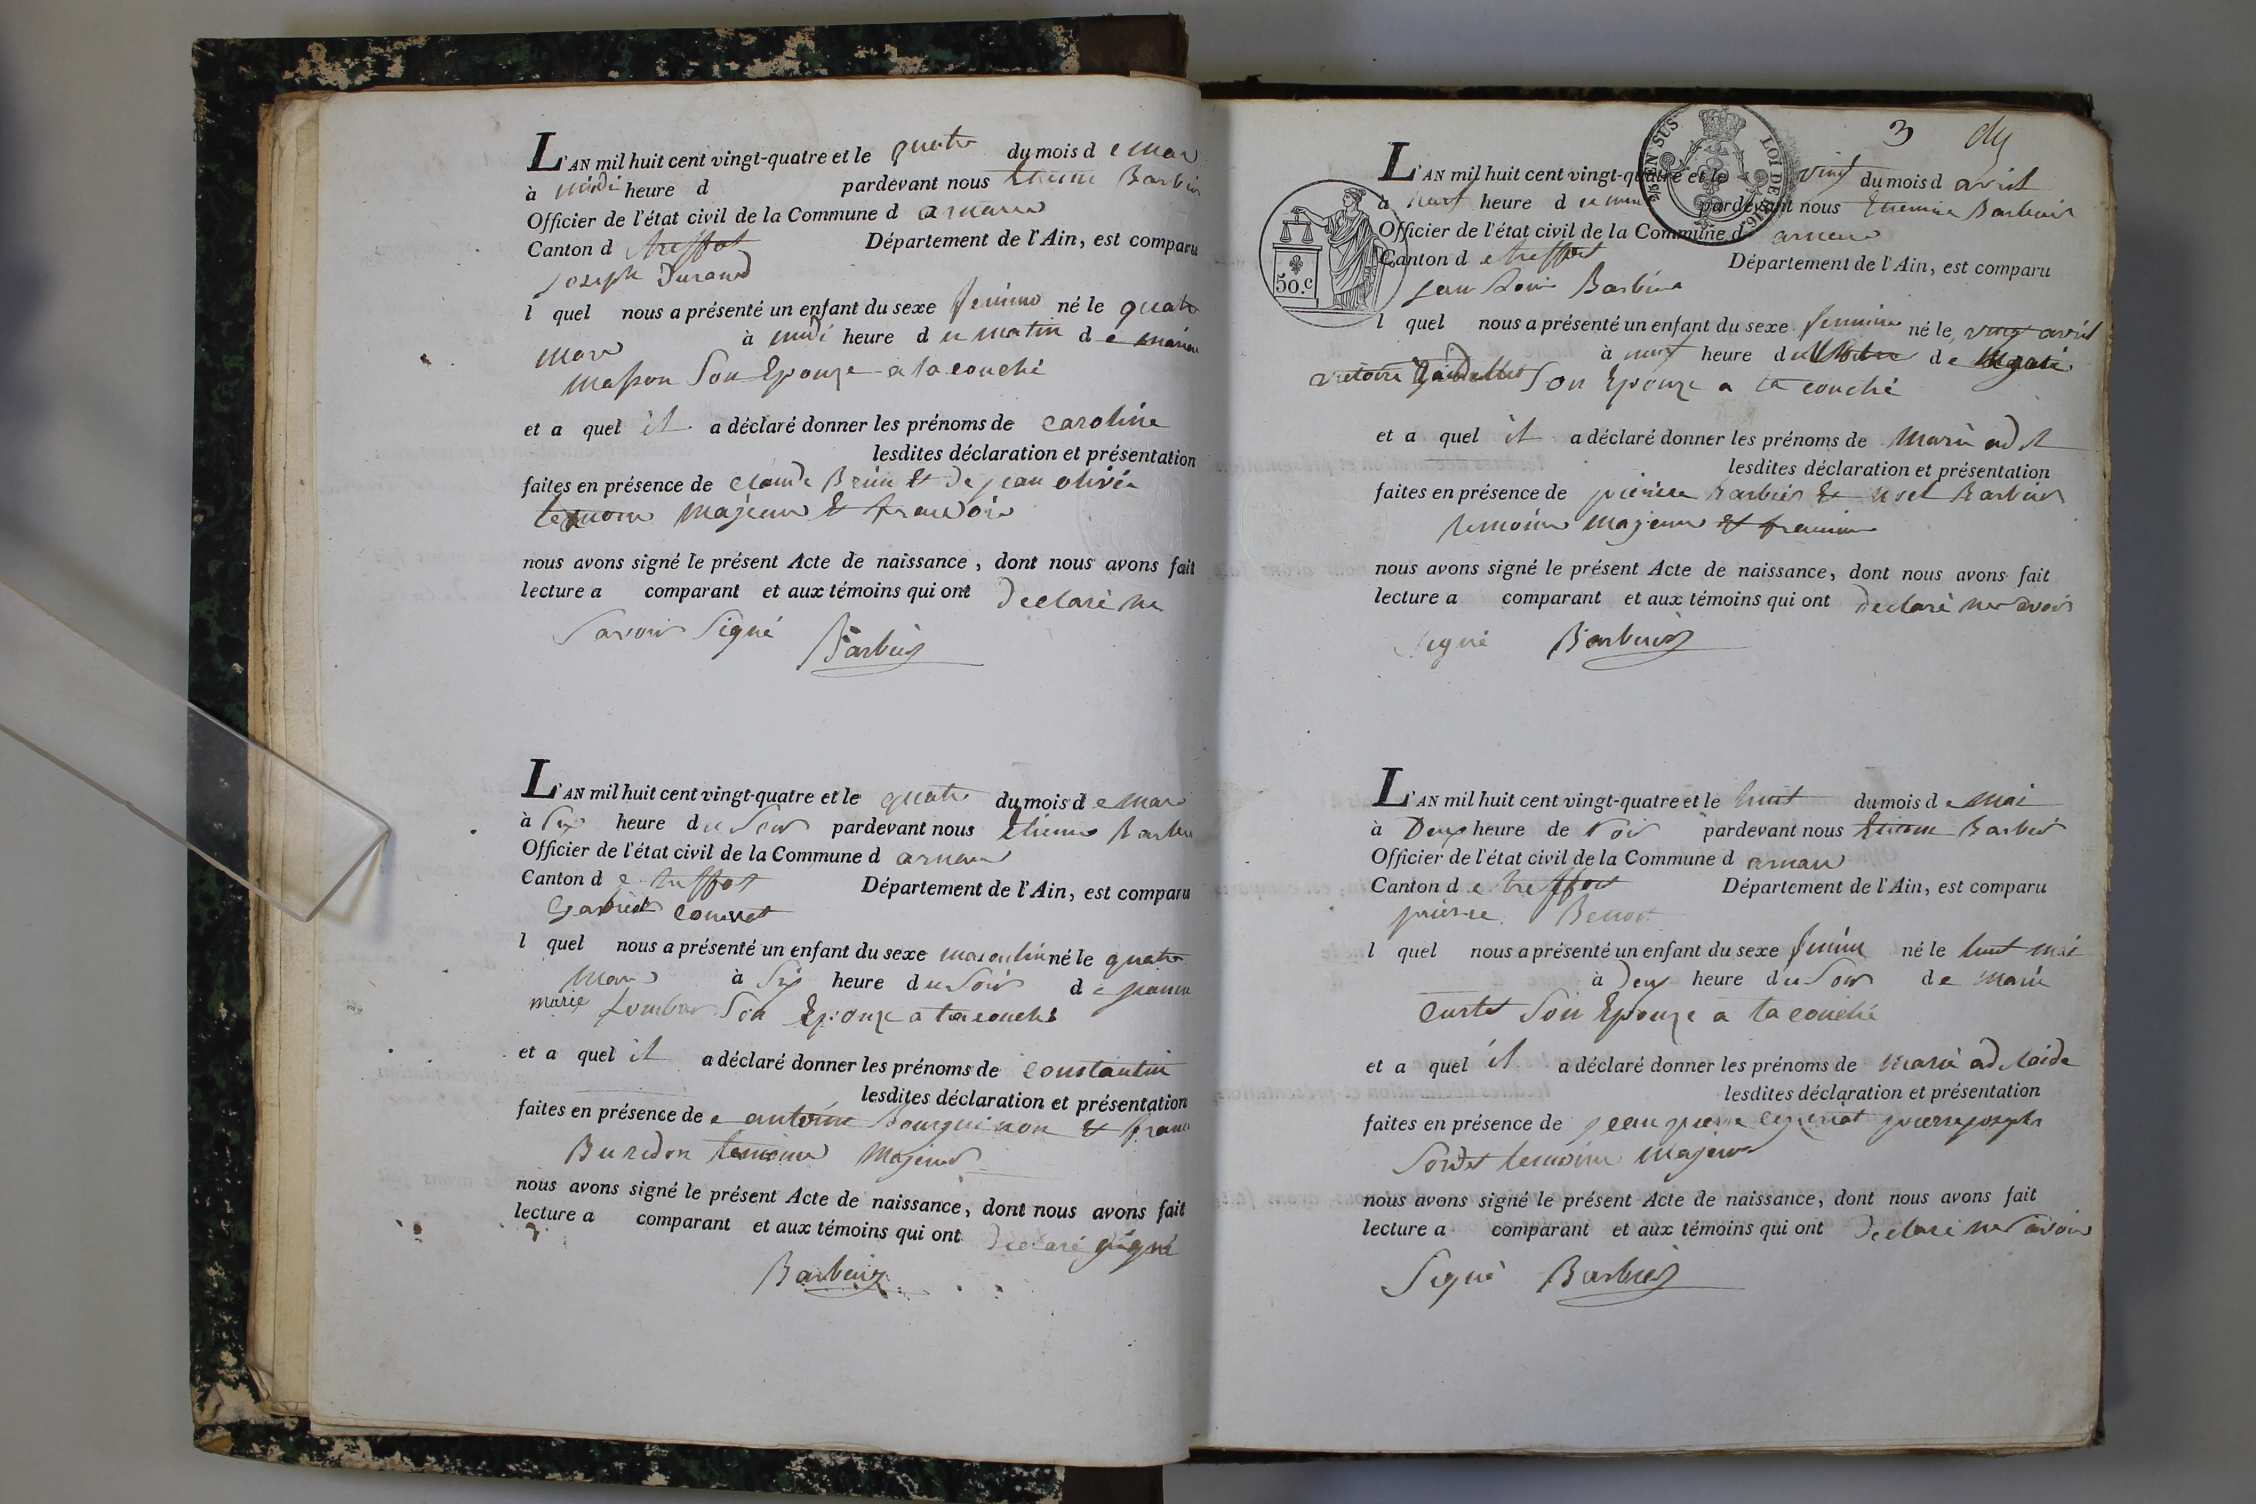 L'AN mil huit cent vingt-quatre et le quatre du mois d e mars
à midi heure d pardevant nous Etienne Barbier
Officier de l'état civil de la Commune d arnans
Canton d treffort Département de l'Ain, est comparu
joseph Durand
l quel nous a présenté un enfant du sexe feminin né le quatre
mars à midi heure d u matin d e
Masson Son Epouze a ta couché
et a quel il a déclaré donner les prénoms de caroline
lesdites déclaration et présentation
faites en présence de claude Brun et de jean olivie
temoins majeurs et
nous avons signé le présent Acte de naissance, dont nous avons fait
lecture a comparant et aux témoins qui ont declaré ne
savoir Signé Barbier
L'AN mil huit cent vingt-quatre et le quatre du mois d e mars
à Six heure d u Soir pardevant nous Etienne Barbier
Officier de l'état civil de la Commune d arnans
Canton d e treffort Département de l'Ain, est comparu
gabriel convert
l quel nous a présenté un enfant du sexe masculin né le quatre
Mars à Six heure d u Soir d e
marie Lombar Son Epouze a ta couché
et a quel il a déclaré donner les prénoms de constantin
lesdites déclaration et présentation
faites en présence de e antoine Bourguinon et
Buredon temoins Majeurs
nous avons signé le présent Acte de naissance, dont nous avons fait
lecture a comparant et aux témoins qui ont declaré signé
Barbier
3
EN SUS LOI DE 1816
50.c
L'AN mil huit cent vingt-quatre et le vint du mois d avril
à neuf heure d pardevant nous Etienne Barbier
Officier de l'état civil de la Commune d arnans
Canton d e treffort Département de l'Ain, est comparu
jean Louis Barbier
l quel nous a présenté un enfant du sexe feminin né le vingt avril
à neuf heure d u d e Marie
victoire Son Epouze a ta couché
et a quel il a déclaré donner les prénoms de Marie
lesdites déclaration et présentation
faites en présence de pierre Barbier et noel Barbier
temoins majeurs et
nous avons signé le présent Acte de naissance, dont nous avons fait
lecture a comparant et aux témoins qui ont declaré ne savoir
Signé Barbier
L'AN mil huit cent vingt-quatre et le huit du mois d e Mai
à Deux heure de soir pardevant nous Etienne Barbier
Officier de l'état civil de la Commune d arnans
Canton d e treffort Département de l'Ain, est comparu
pierre Benoit
l quel nous a présenté un enfant du sexe feminin né le huit mai
à deux heure d u Soir d e Marie
Curtet Son Epouze a ta couché
et a quel il a déclaré donner les prénoms de Marie adelaide
lesdites déclaration et présentation
faites en présence de jean pierre pierre joseph
Sordet temoins Majeurs
nous avons signé le présent Acte de naissance, dont nous avons fait
lecture a comparant et aux témoins qui ont declaré ne savoir
Signé Barbier